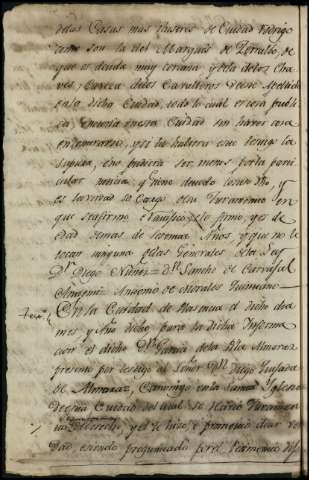 delas Casas mas ilustres de Ciudad Rodrigo
como son la del Marques de Zerralbo, de
que es deuda muy cercana y dela delos Cha
ves, y cerca delos Carrillos tiene
en la dicha Ciudad, todo lo cual es cosa publi
ca, y notoria en esta Ciudad sin haver cosa
en contrario, y si la hubiera este testigo la
supiera, o no pudiera ser menos por la parti
cular noticia, que tiene de todo lo susodicho, y
es la verdad so cargo de su Juramento en
que se afirmo e ratifico, y lo firmo, y es de
edad demas de sesenta Años, y que no le
tocan ninguna delas Generales dela Ley
Dn. Diego Dn. Sancho de Carvajal
Antemi Antonio de Morales
En la Ciudad de Plasencia el dicho dia
mes y Año dicho para la dicha Informa
cion el dicho Dn. Garcia dela
presento por testigo al Señor Dn. Diego
de Almaraz, Canonigo en la Santa Iglesia
de esta Ciudad del cual se recivio Juramen
to en derecho, y el le hizo, e prometio decir ver
dad, e siendo preguntado por el